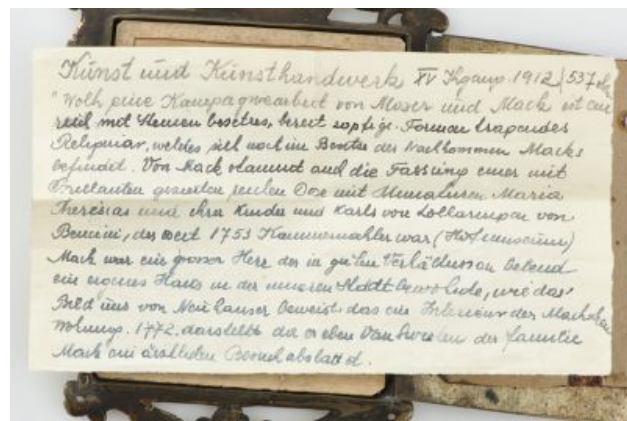 Kunst und Kunsthandwerk XV Jhgang. 1912/537
"Wohl eine Kompagniearbeit von Moser und Mack ist ein
reich mit Steinen besetztes, bereit zopfige Formen tragendes
Reliquiar, welches sich noch im Besitze der Nachkommen Macks
befindet. Von Mack stammt auch die Fassung einer mit
Brillanten gezierten Dose mit Miniaturen Maria
Theresias und ihrer Kinder und Karls von Lothringen von
Bencini, der seit 1753 Kammermahler war (Hofmuseum)
Mack war ein grosser Herr der in guten Verhältnissen lebend
ein eigenes Haus in der inneren Stadt bewohnte, wie das
Bild uns von Neuhauser beweist, das ein Interieur der Mackschen
Wohnung. 1772. darstellt da er eben Van Swieten der familie
Mack ein ärztlichen Besuch abstattet.